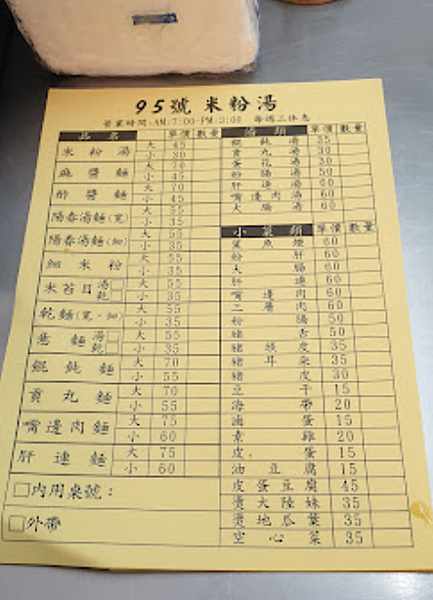 95號 米粉湯
營業時間:AM:7:00-PM:3:00 每週三休息
品名 單價 數量
米粉湯 大 45
小 30
麻醬麵 大 70
小 45
酢醬麵 大 70
小 45
陽春湯麵(寬) 大 55
小 35
陽春湯麵(細) 大 55
小 35
細米粉 大 55
小 35
米苔目 湯 乾 大 55
小 35
乾麵(寬、細) 大 55
小 35
意麵 湯 乾 大 55
小 35
餛飩麵 大 70
小 55
貢丸麵 大 70
小 55
嘴邊肉麵 大 75
小 60
肝連麵 大 75
小 60
內用桌號：
外帶
湯類 單價 數量
餛飩湯 35
貢丸湯 30
蛋花湯 30
粉腸湯 50
肝連湯 60
嘴邊肉湯 60
大腸湯 60
小菜類 單價 數量
鯊魚煙 60
粉肝 60
大腸 60
肝連 60
嘴邊肉 60
三層肉 60
粉腸 50
豬舌 50
豬頭皮 35
豬耳朵 35
豬皮 30
豆干 15
海帶 20
滷蛋 15
素雞 20
皮蛋 15
油豆腐 15
皮蛋豆腐 45
燙大陸妹 35
燙地瓜葉 35
空心菜 35